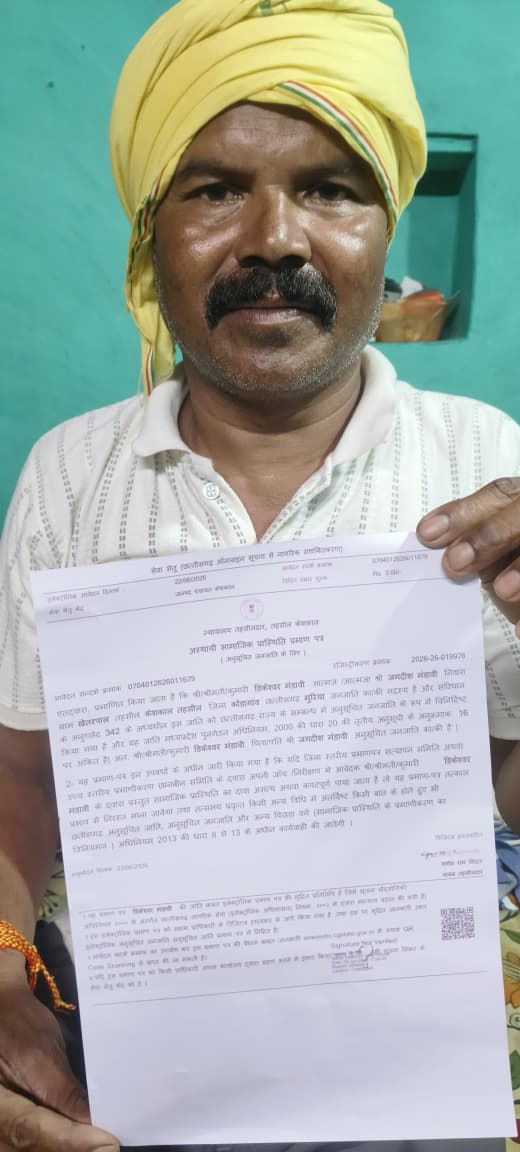 सेवा सेतु (छत्तीसगढ़ ऑनलाइन सूचना से नागरिक सशक्तिकरण)
इलेक्ट्रॉनिक आवेदन दिनांक 22/06/2026 आवेदन संदर्भ क्रमांक 070401262601679
सेवा सेतु केंद्र जनपद पंचायत केशकाल
न्यायालय तहसीलदार, तहसील केशकाल
अस्थायी सामाजिक प्रास्थिति प्रमाण पत्र
( अनुसूचित जनजाति के लिए )
आवेदन सन्दर्भ क्रमांक 0704012626011679 रजिस्ट्रीकरण क्रमांक 2026-26-019976
एतद्द्वारा, प्रमाणित किया जाता है कि श्री/श्रीमती/कुमारी डिकेश्वर मंडावी आत्मज /आत्मजा श्री जगदीश मंडावी निवास
ग्राम खेतरपाल तहसील केशकाल तहसील जिला कोंडागांव छत्तीसगढ़ मुरिया जनजाति का/की सदस्य है और संविधान
के अनुच्छेद 342 के अध्यधीन इस जाति को छत्तीसगढ़ राज्य के सम्बन्ध में अनुसूचित जनजाति के रूप में विनिर्दिष्ट
किया गया है और यह जाति मध्यप्रदेश पुनर्गठन अधिनियम, 2000 की धारा 20 की तृतीय अनुसूची के अनुक्रमांक 16
पर अंकित है| अतः श्री/श्रीमती/कुमारी डिकेश्वर मंडावी पिता/पति श्री जगदीश मंडावी अनुसूचित जनजाति का/की है |
2- यह प्रमाण-पत्र इन उपबंधों के अधीन जारी किया गया है कि यदि जिला स्तरीय प्रमाणपत्र सत्यापन समिति अथवा
उच्च स्तरीय प्रमाणीकरण छानबीन समिति के द्वारा अपनी जांच /निरीक्षण में आवेदक श्री/श्रीमती/कुमारी डिकेश्वर
मंडावी के द्वारा प्रस्तुत सामाजिक प्रास्थिति का दावा असत्य अथवा कपटपूर्ण पाया जाता है तो यह प्रमाण-पत्र तत्काल
प्रभाव से निरस्त माना जावेगा तथा तत्समय प्रवृत्त किसी अन्य विधि में अंतर्विष्ट किसी बात के होते हुए भी
छत्तीसगढ़ अनुसूचित जाति, अनुसूचित जनजाति और अन्य पिछड़ा वर्ग (सामाजिक प्रास्थिति के प्रमाणीकरण का
विनियमन ) अधिनियम 2013 की धारा 8 से 13 के अधीन कार्यवाही की जावेगी ।
अनुमोदन दिनांक 23/06/2026
डिजिटल हस्ताक्षरित
नायब तहसीलदार
1.यह प्रमाण पत्र डिकेश्वर मंडावी की जाति बाबत इलेक्ट्रॉनिक प्रमाण पत्र की मुद्रित प्रतिलिपि है जिसे सूचना प्रौद्योगिकी
Code Scanning से प्राप्त की जा सकती है|
Signature Not Verified
सेवा सेतु केंद्र को दें ।